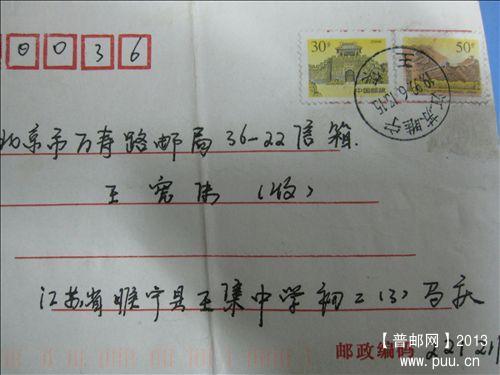 0036
30分
50分
中国邮政
江苏睢宁
北京市万寿路邮局36-22信箱
王宪 (收)
江苏省睢宁县王集中学初二(3)马庆
邮政编码 221 21
【普邮网】2013
www.puu.cn